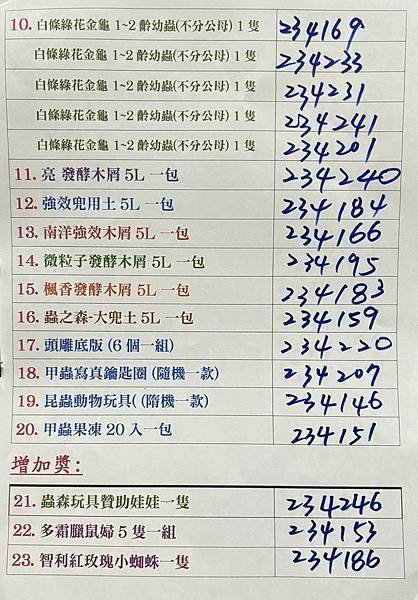 10. 白條綠花金龜 1~2 齡幼蟲(不分公母) 1 隻 234169
白條綠花金龜 1~2 齡幼蟲(不分公母) 1 隻 234233
白條綠花金龜 1~2 齡幼蟲(不分公母) 1 隻 234231
白條綠花金龜 1~2 齡幼蟲(不分公母) 1 隻 234241
白條綠花金龜 1~2 齡幼蟲(不分公母) 1 隻 234201
11. 亮 發酵木屑 5L 一包 234240
12. 強效兜用土 5L 一包 234184
13. 南洋強效木屑 5L 一包 234166
14. 微粒子發酵木屑 5L 一包 234195
15. 楓香發酵木屑 5L 一包 234183
16. 蟲之森-大兜土 5L 一包 234159
17. 頭雕底版 (6 個一組) 234220
18. 甲蟲寫真鑰匙圈 (隨機一款) 234207
19. 昆蟲動物玩具( (隋機一款) 234146
20. 甲蟲果凍 20 入一包 234151
增加獎:
21. 蟲森玩具贊助娃娃一隻 234246
22. 多霜臘鼠婦 5 隻一組 234153
23. 智利紅玫瑰小蜘蛛一隻 234186